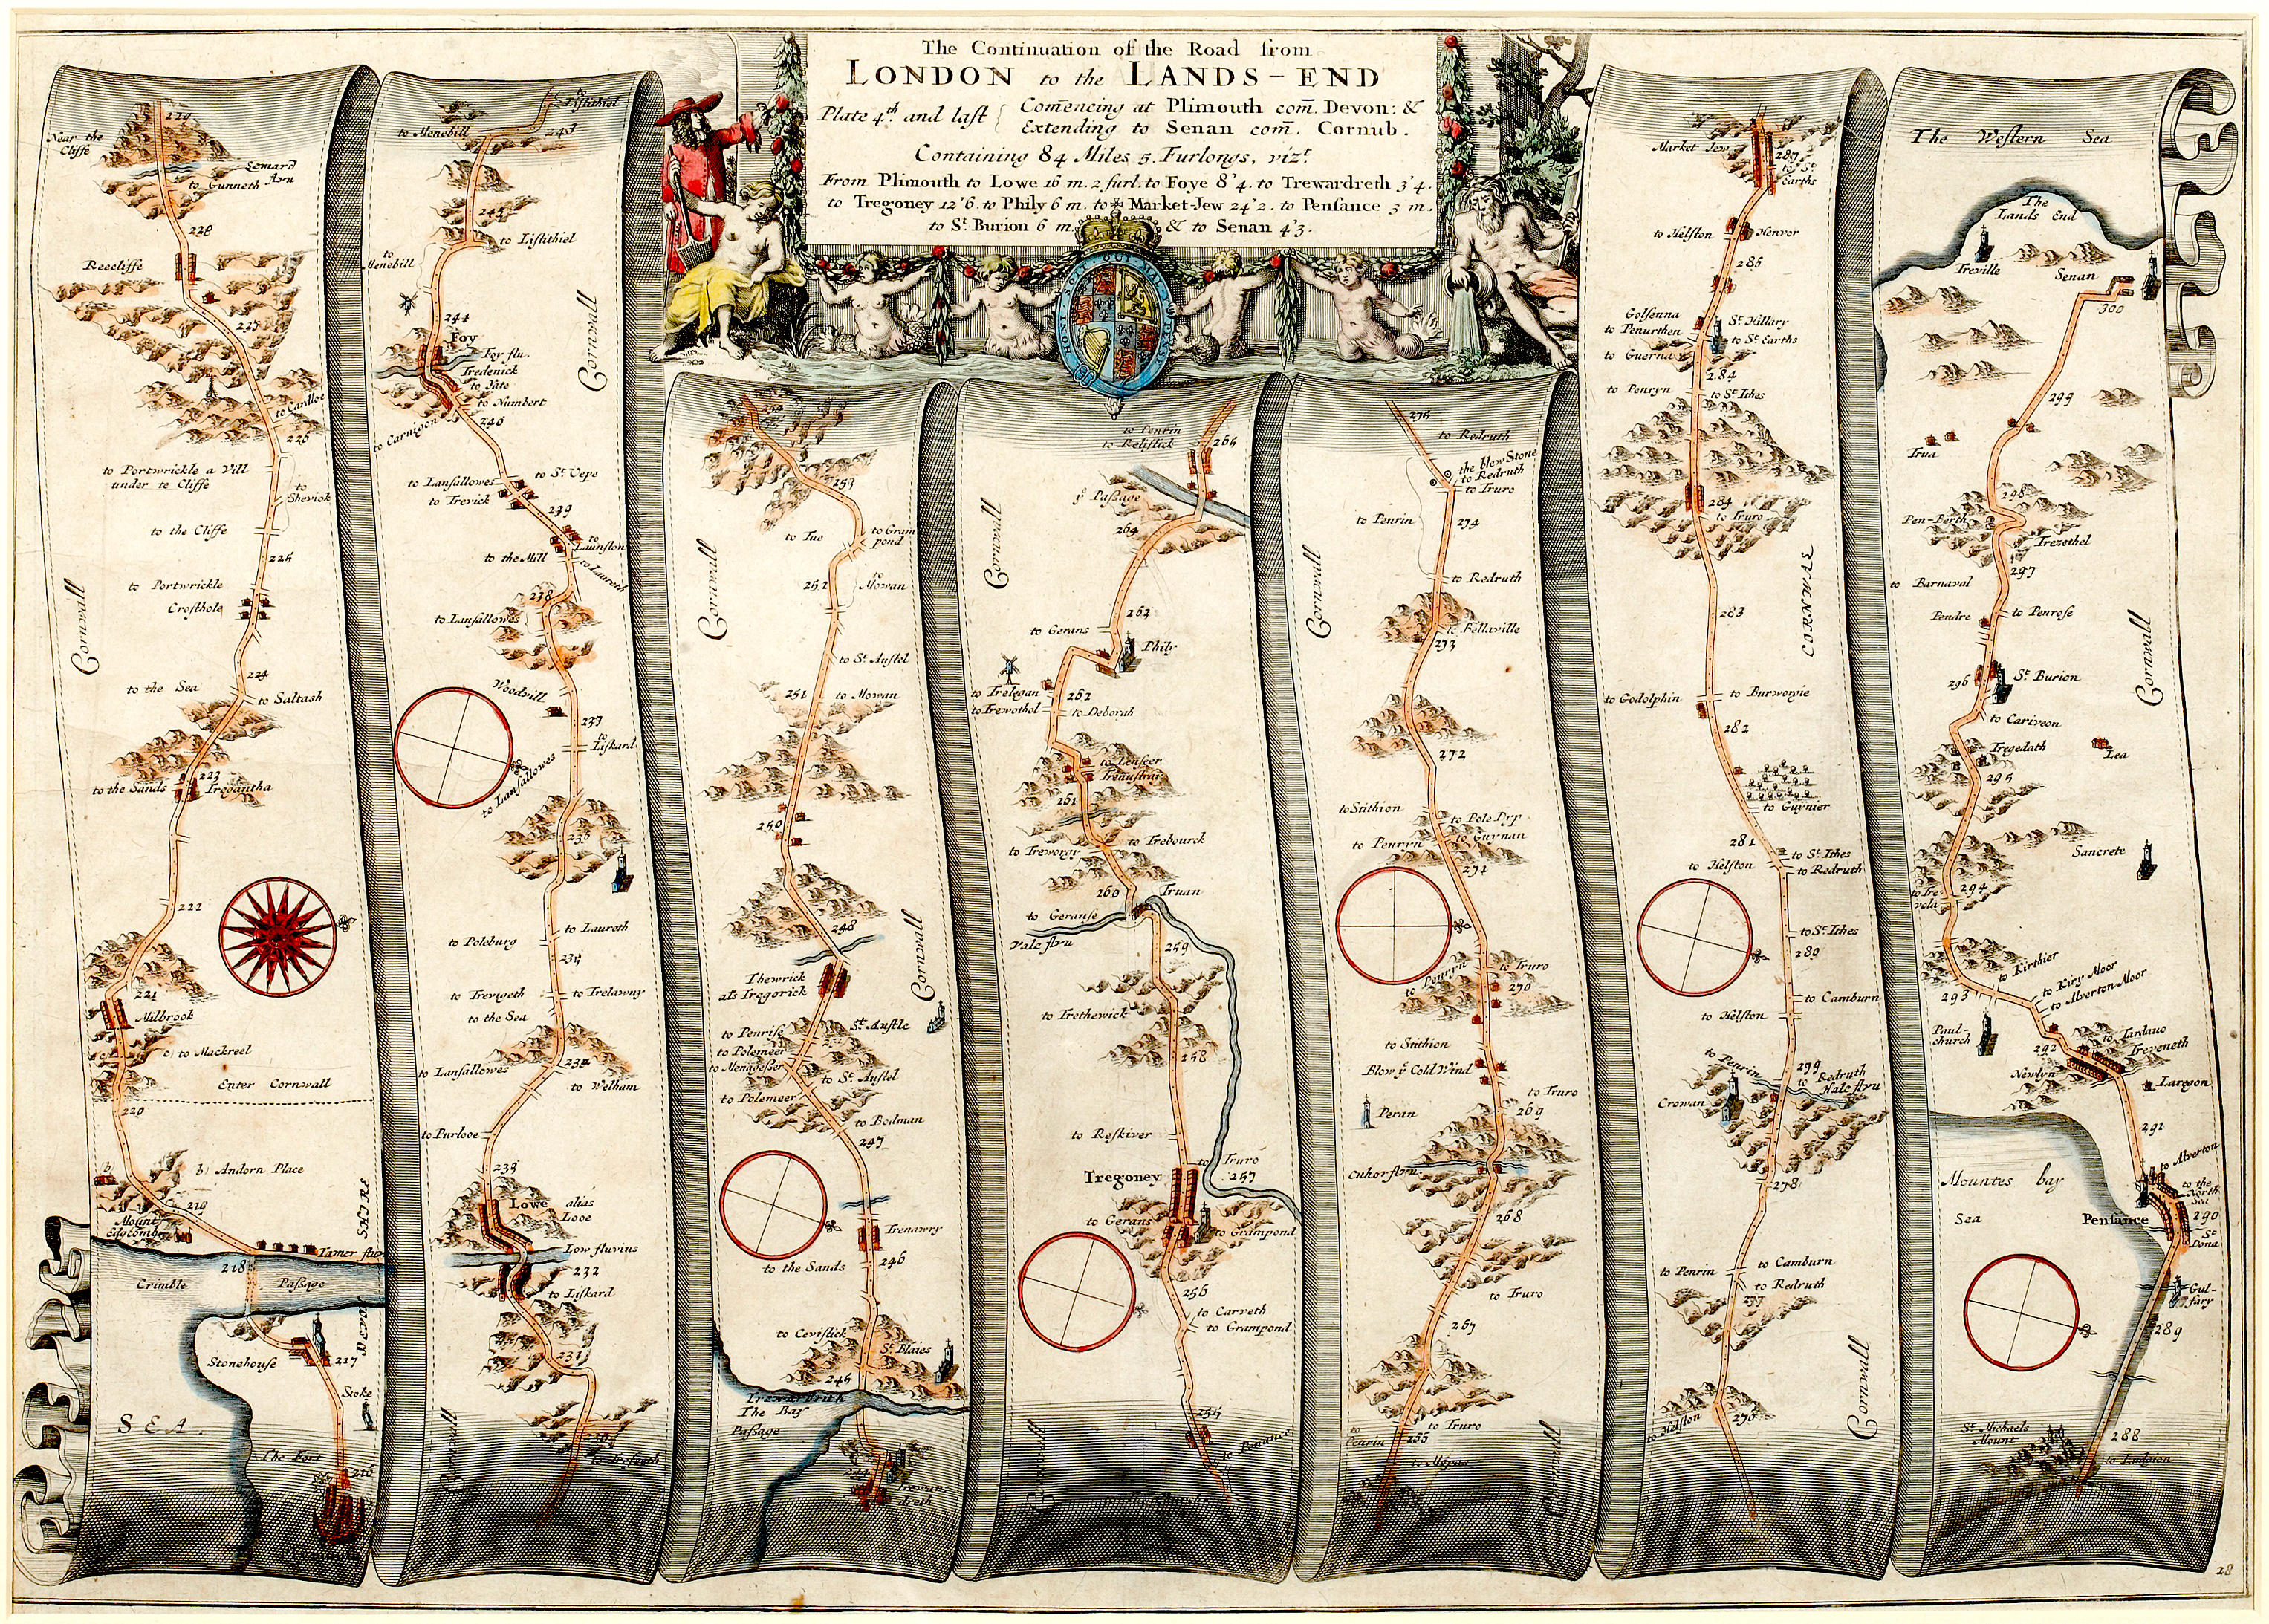 The Continuation of the Road from
LONDON to the LANDS-END
Plate 4th and last { Comencing at Plimouth com. Devon: &
Extending to Senan com. Cornub.
Containing 84 Miles 5. Furlongs, vizt.
From Plimouth to Lowe 16 m. 2 furl. to Foye 8'4. to Trewardreth 3'4.
to Tregoney 12'6. to Phily 6 m. to Market-Jew 24'2. to Pensance 3 m.
to St. Burion 6 m. & to Senan 4'3.
HONI SOIT QUI MAL Y PENSE
229
Near the
Cliffe
Semard
flvu
to Gunneth
228
Reecliffe
227
to Cantloe
226
to Portwrickle a Vill
under te Cliffe
to
Shevick
to the Cliffe
225
to Portwrickle
Crosthole
Cornwall
224
to the Sea
to Saltash
223
to the Sands
Tregantha
222
221
Milbrook
c) to Mackreel
Enter Cornwall
220
b) Andorn Place
219
Mount
Edgcombe
Tamer fluv
218
Crimble
Passage
DEVON
SHIRE
Stonehouse
217
Stoke
SEA.
The Fort
216
Plymouth
to
Listithiel
to Menebill
243
242
to Listithiel
to
Menebill
244
Cornwall
Foy
Foy flu.
Tredenick
to Yate
to Numbert
to Carnigon
240
to Lansallowes
to St. Vepe
to Trevick
239
to
Launston
to the Mill
to Laureth
238
to Lansallowes
Woodvill
237
to
Liskard
to Lansallowes
236
to Poleburg
to Laureth
235
to Trevgeth
to Trelawny
to the Sea
234
to Lansallowes
to Welham
to Purlooe
233
Lowe alias
Looe
Low fluvius
232
to Liskard
231
Cornwall
254
253
to Tue
to Gram
pond
252
to
Mowan
Cornwall
to St. Austel
251
to Mowan
250
248
Thewrick
als Tregorick
Cornwall
to Penrise
St. Austle
to Polemeer
to Menagesser
to St. Austel
to Polemeer
to Bodman
247
Trenawry
246
to the Sands
to Cevistick
St. Blaies
245
Trewardrith
The Bay
Passage
Trewar-
dreth
to Penrin
to Relistick
265
ye Passage
264
Cornwall
262
to Gerans
Phily
to Trelegan
262
to Trewothol
to Deborah
to Lenseer
Trenustrai
261
to Treworgy
to Trebourck
260
Truan
to Geranse
Vale flvu
259
to Trethewick
258
to Reskiver
Tregoney
to Truro
257
to Gerans
to Grampond
256
to Carveth
to Grampond
255
to Penance
275
to Redruth
the blew Stone
to Redruth
to Truro
to Penrin
274
Cornwall
to Redruth
to Fellaville
273
272
to Stithion
to Pole Pyp
to Penryn
to Guynan
271
to Penryn
to Truro
270
to Stithion
Blow ye Cold Wind
Peran
to Truro
269
Cuhor flvu
268
to Truro
267
to
Penrin
to Truro
266
to Mopas
Market Jew
287
to St.
Earths
to Helston
Henvor
285
Golsenna
to Penurthen
St. Hillary
to St. Earths
to Guerna
284
to Penryn
to St. Ithes
284
to Truro
CORNWAL
283
to Godolphin
to Burwowie
282
to Guynier
281
to Helston
to St. Ithes
to Redruth
to St. Ithes
280
to Camburn
to Helston
279
to Penrin
to Redruth
Hale flvu
Crowan
278
to Penrin
to Camburn
to Redruth
277
Cornwall
276
to Helston
The Western Sea
The
Lands End
Treville
Senan
300
299
Trua
298
Pen-Berth
Trezethel
297
to Barnaval
Pendre
to Penrose
Cornwall
296
St. Burion
to Cariveon
Tregedath
Lea
295
Sancrete
294
to Tre
vola
to Kirthier
293
to Kiry Moor
to Alverton Moor
Paul-
church
292
to Tardauo
Treveneth
Newlyn
Laregon
291
Mountes bay
Sea
to Alverton
to the
North
Sea
Pensance
290
St.
Dona
Gul-
fary
289
St. Michaels
Mount
288
to Ludvion
28